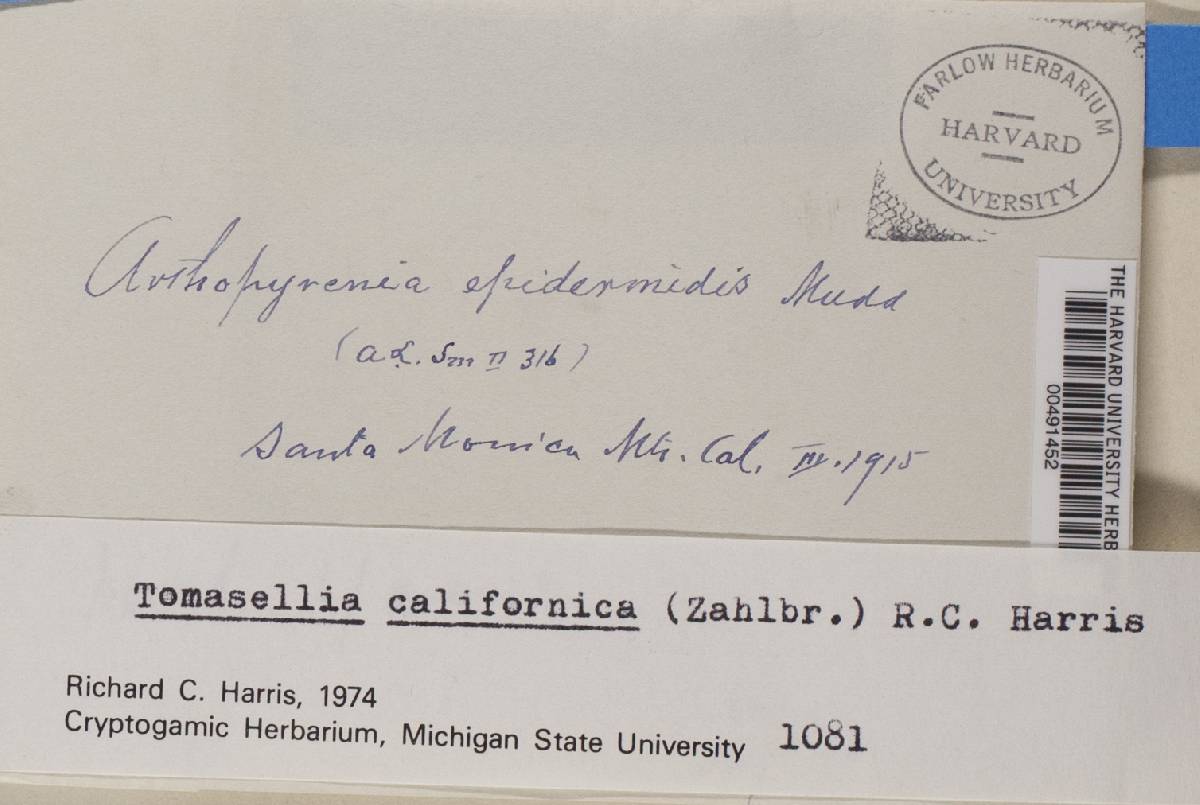 FARLOW HERBARIUM
HARVARD
UNIVERSITY
Arthopyrenia epidermidis Mudd
(A.L. Sm II 316)
Santa Monica Mts. Cal. III.1915
THE HARVARD UNIVERSITY HERB
00491452
Tomasellia californica (Zahlbr.) R.C. Harris
Richard C. Harris, 1974
Cryptogamic Herbarium, Michigan State University 1081